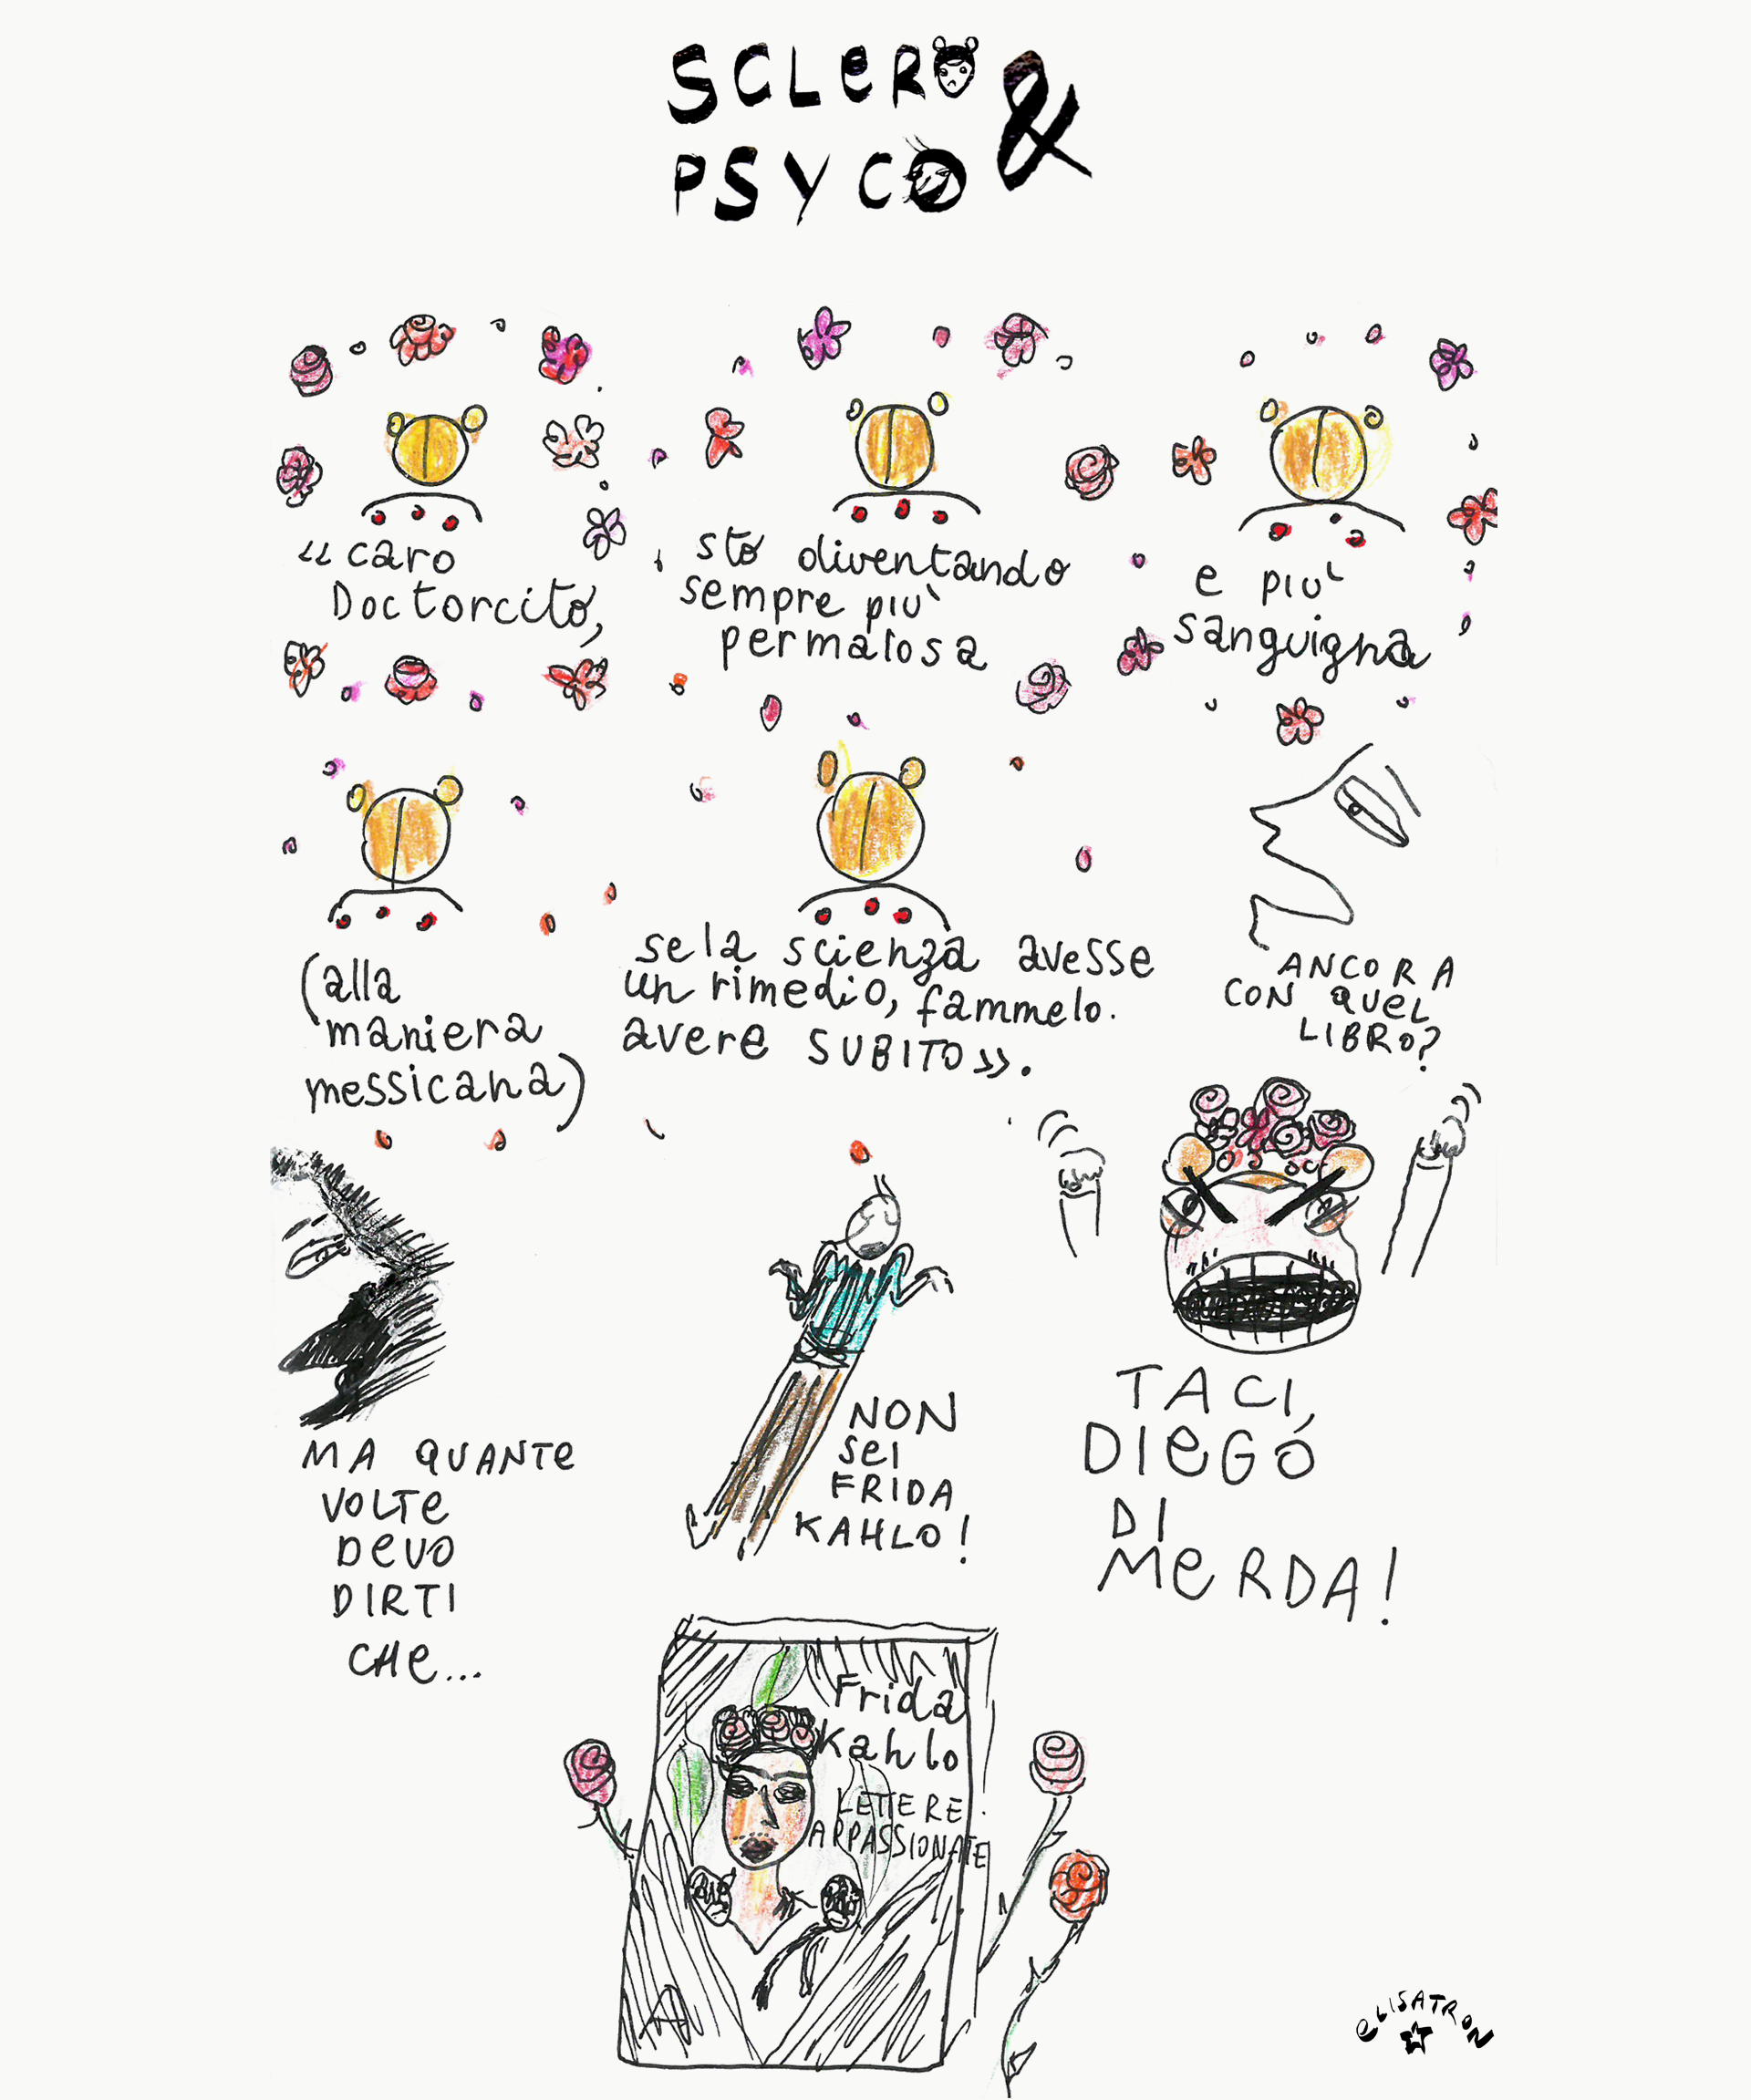 SCLERO &
PSYCO
«caro
Doctorcito,
sto diventando
sempre più
permalosa
e più
sanguigna
(alla
maniera
messicana)
se la scienza avesse
un rimedio, fammelo.
avere SUBITO».
ANCORA
CON QUEL
LIBRO?
MA QUANTE
VOLTE
DEVO
DIRTI
CHE...
NON
SEI
FRIDA
KAHLO!
TACI,
DIEGO
DI
MERDA!
Frida
Kahlo
LETTERE
APPASSIONATE
ELISATRON